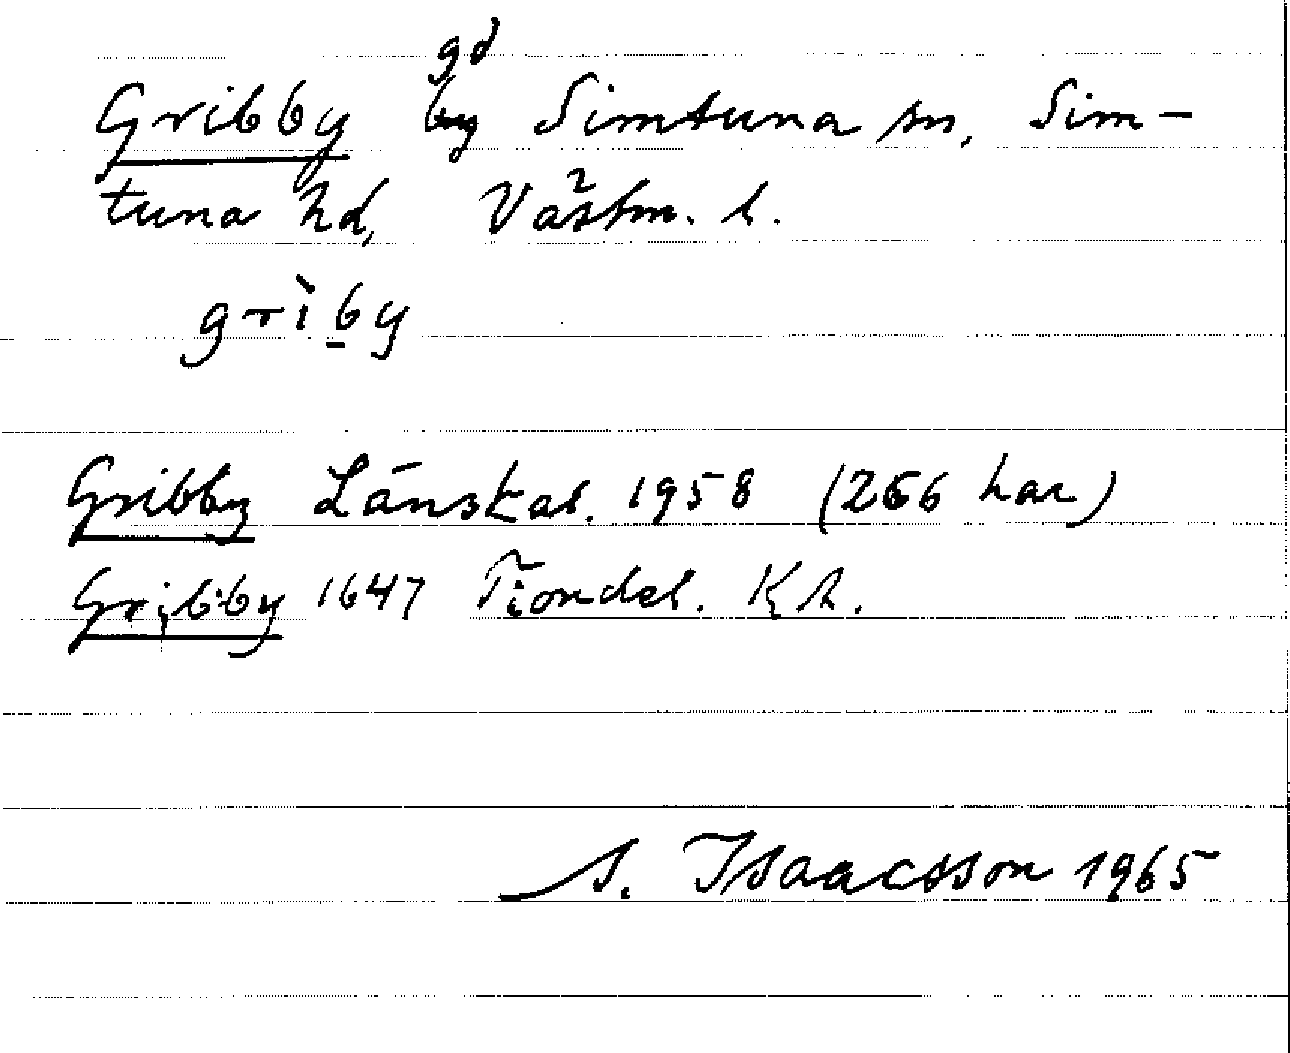 gd
Gribby by Simtuna sn, Sim-
tuna hd, Västm. l.
grìby
Gribby Länskal. 1958 (266 har)
Gribby 1647 Tiondel. KA.
S. Isaacsson 1965